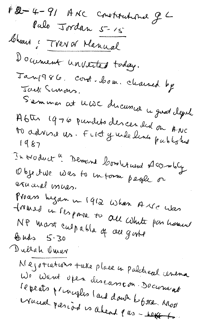 2-4-91 ANC Constitutional G L
Pallo Jordan 5-15
Chair: Trevor Manuel
Document unveiled today.
Jan 1986. Cont. Com. chaired by
Jack Simons.
Seminar at UWC discussed in great depth
After 1976 pundits descended on ANC
to advise us. First guidelines published
1987
Demand Constituent Assembly
Objective was to inform people on
crucial issues.
Process began in 1912 when ANC was
formed in response to all White parliament
NP most culpable of all govts
Ends 5-30
Dullah Omar
Negotiations take place in political arena
We want open discussion. Document
repeats principles laid down before. Most
crucial period is ahead